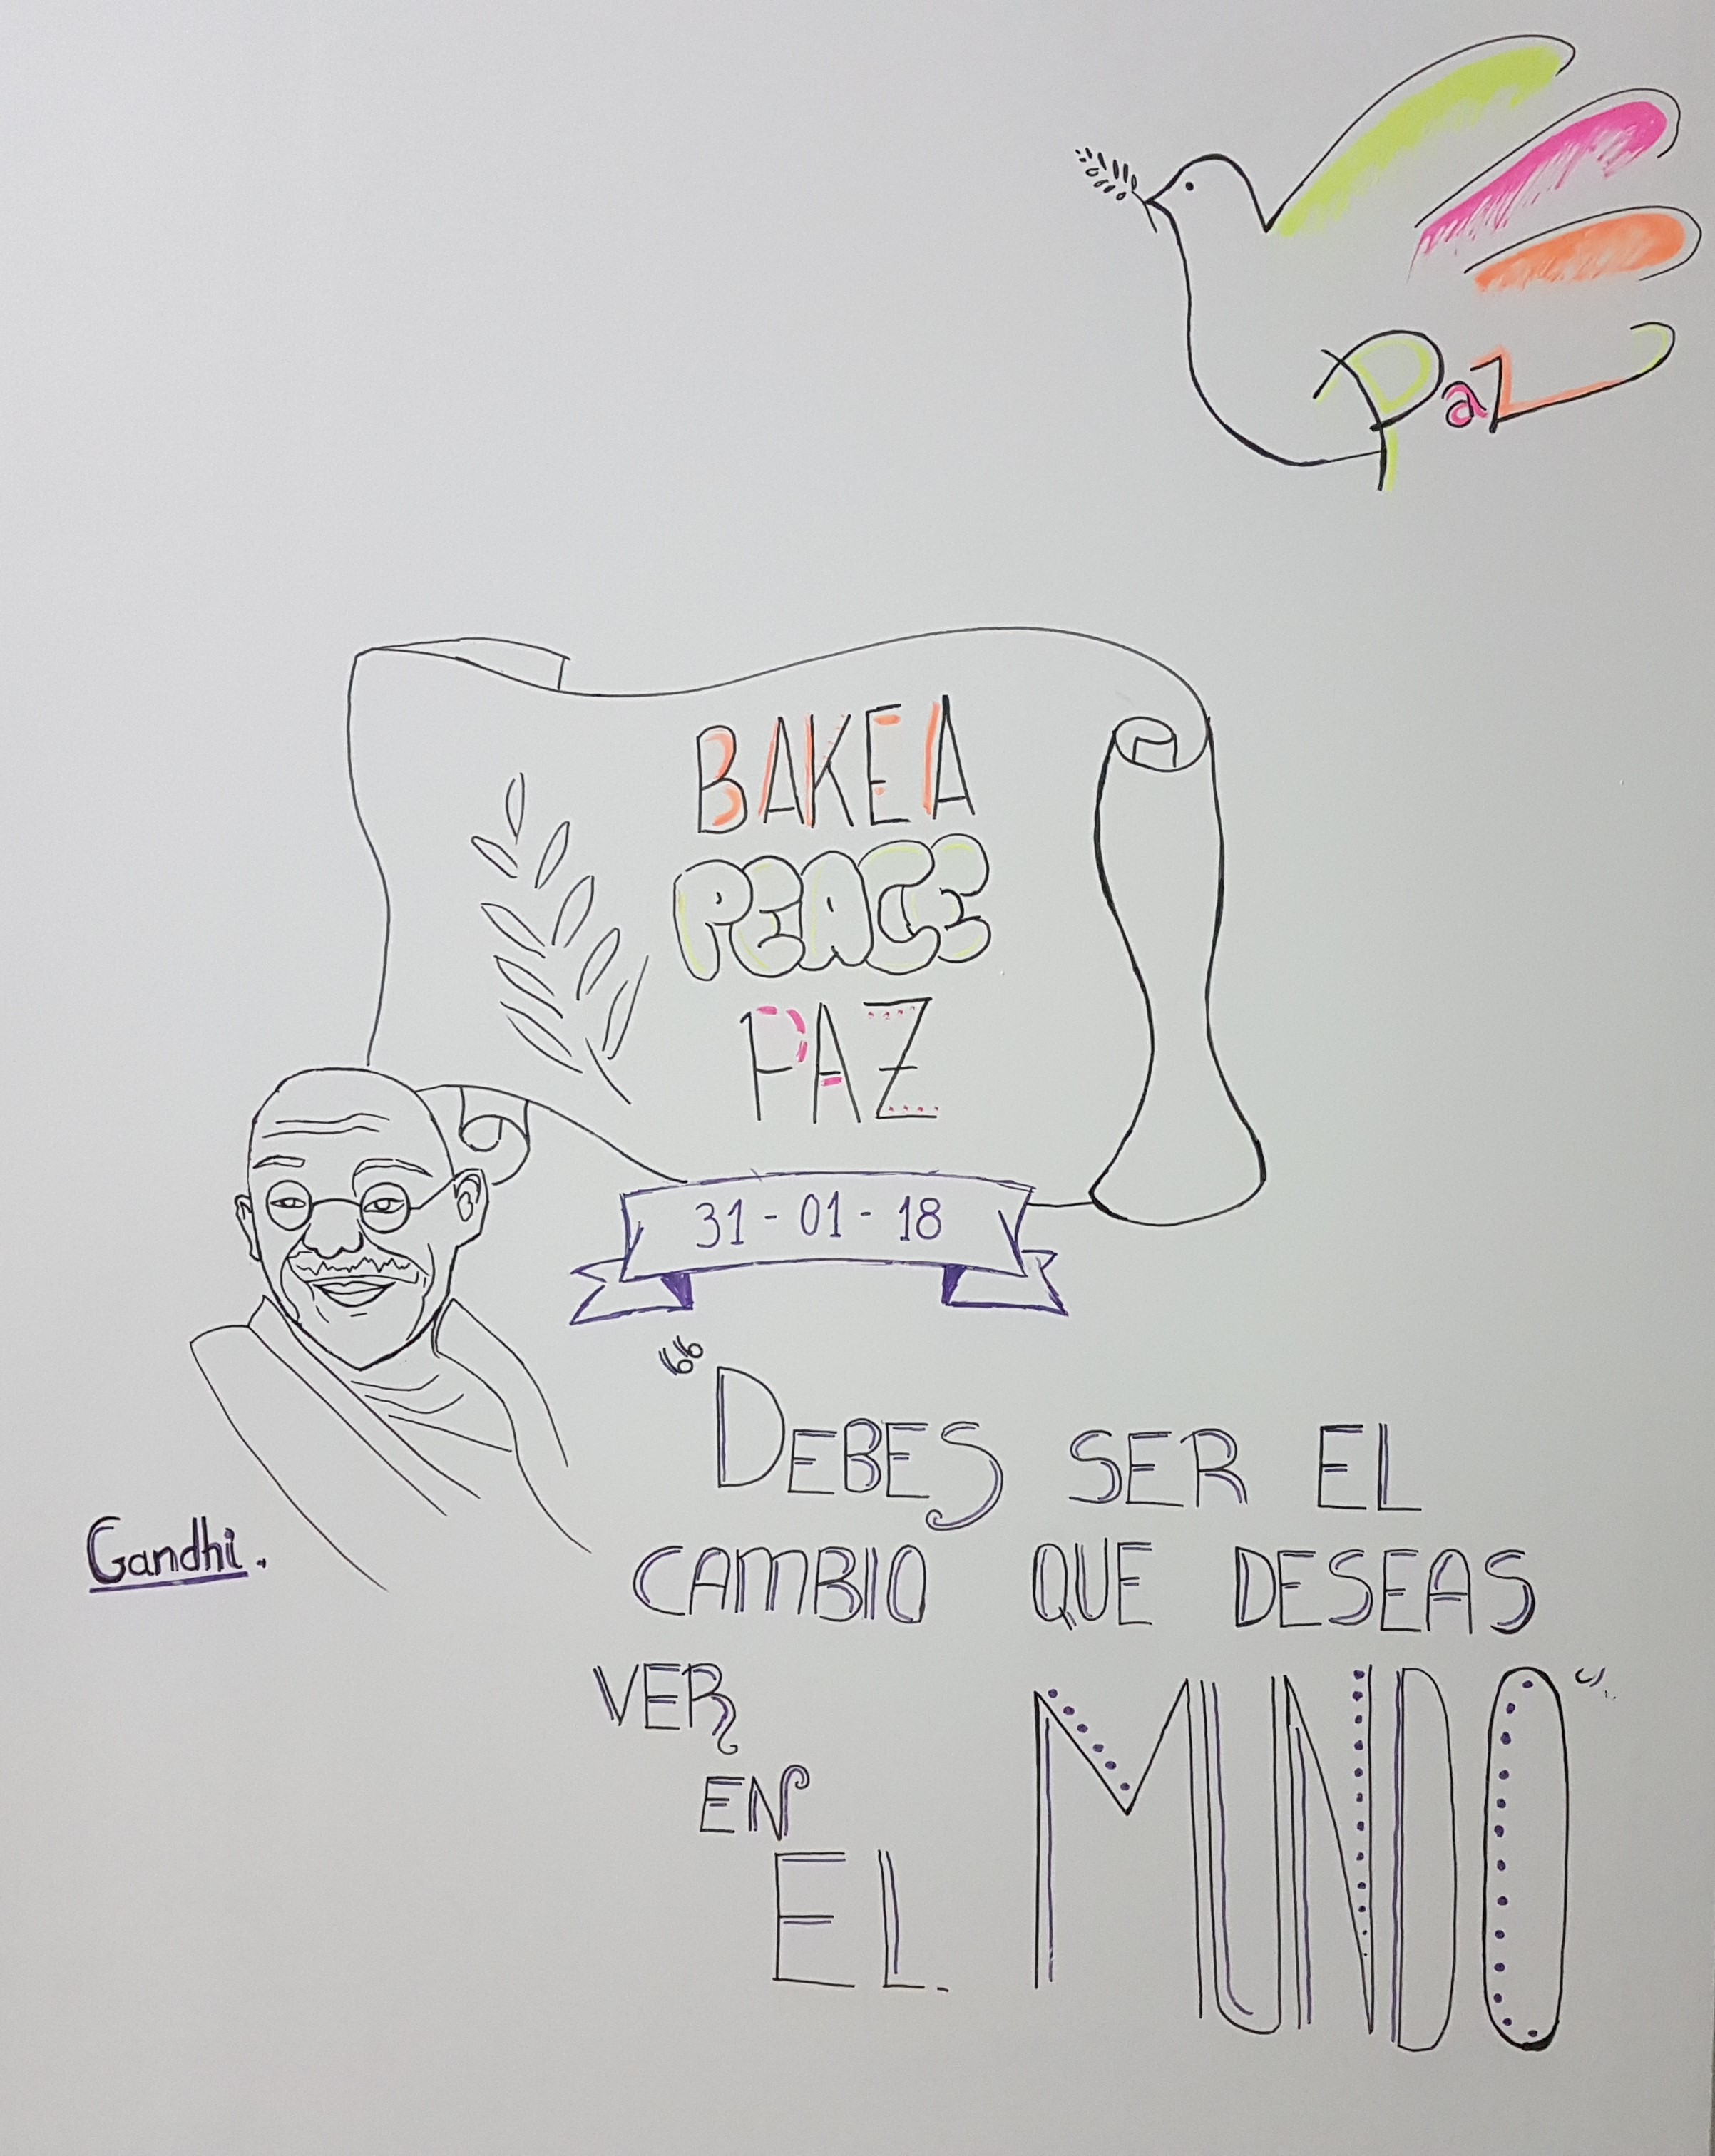 Paz
BAKEA
PEACE
PAZ
31-01-18
"DEBES SER EL
CAMBIO QUE DESEAS
VER
EN
EL. MUNDO"
Gandhi.